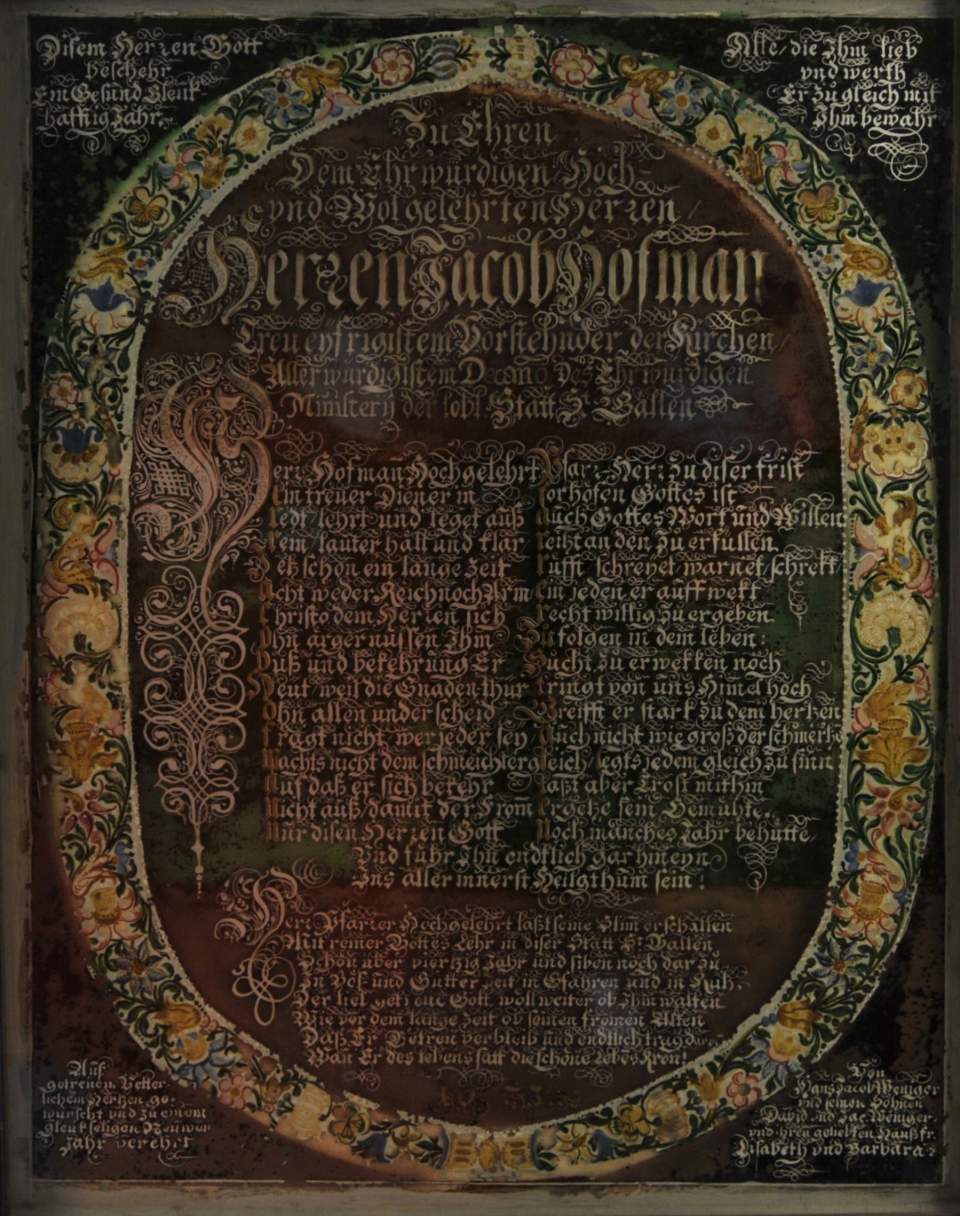 Disem Herzen Gott
beschehr
Ein Gesund Glük
hafftig Jahr.
Alle, die Ihm lieb
und werth
Er zu gleich mit
Ihm bewahr
Zu Ehren
Dem Ehrwürdigen Hoch-
und Wolgelehrten Herren /
Herren Jacob Hofman
Treu eyfrigistem Vorstehnder der Kirchen /
Aller würdigistem Decano Des Ehrwürdigen
Ministerij der lobl. Statt St. Gallen
Herr Hofman Hochgelehrt Pfarr-Herr zu diser frist
Ein treuer Diener in Vorhöfen Gottes ist
Redt / lehrt und leget auß Auch Gottes Wort und Willen
Rein / lauter hall und klar heißt an den zu erfüllen
schon ein lange Zeit Rufft schreyet warnet / schrekt
Acht weder Reich noch Arm Ein jeden er auff wekt
Christo dem Herren sich Recht willig zu ergeben
Ohn ärgernussen Ihm Zu folgen in dem leben:
Buß und bekehrung Er Sucht zu erwekken noch
Heut / weil die Gnaden-thür Dringt von uns Himel hoch
Ohn allen underscheid Greifft er stark zu dem hertzen
Fragt nicht wer jeder sey Auch nicht wie groß der schmertze
Machts nicht dem schmeichter gleich / legts jedem gleich zu sinn
Auf daß er sich bekehr Laßt aber Trost mithin
Nicht auß / damit der From Ergetze sein Gemühte.
Nur disen Herren Gott Noch manches Jahr behütte
Und führ Ihn endtlich gar hineyn
Ins aller innerst Heilgthum sein!
Herr Pfarrer Hochgelehrt laßt seine Stim erschallen
Mit reiner Gottes Lehr in diser Statt St. Gallen
Schon über vierzig Jahr und siben noch dar zu
In Bös und Gutter Zeit in Gfahren und in Ruh.
Der lieb Gott woll weiter ob Ihm walten
Wie vor dem lange Zeit ob seinen fromen Alten
Daß Er Getreu verbleib und endtlich trag
Wan Er des lebens satt die schöne lebens Kron!
Auß
getreuen Vetter-
lichem Hertzen ge-
wünscht und zu einem
glükseligen Neuwen
Jahr verehrt
Von
Hans Jacob Weniger
und seinen Söhnen
David und Jac. Weniger
und ihren geliebten Haußfr.
Elsabeth und Barbara